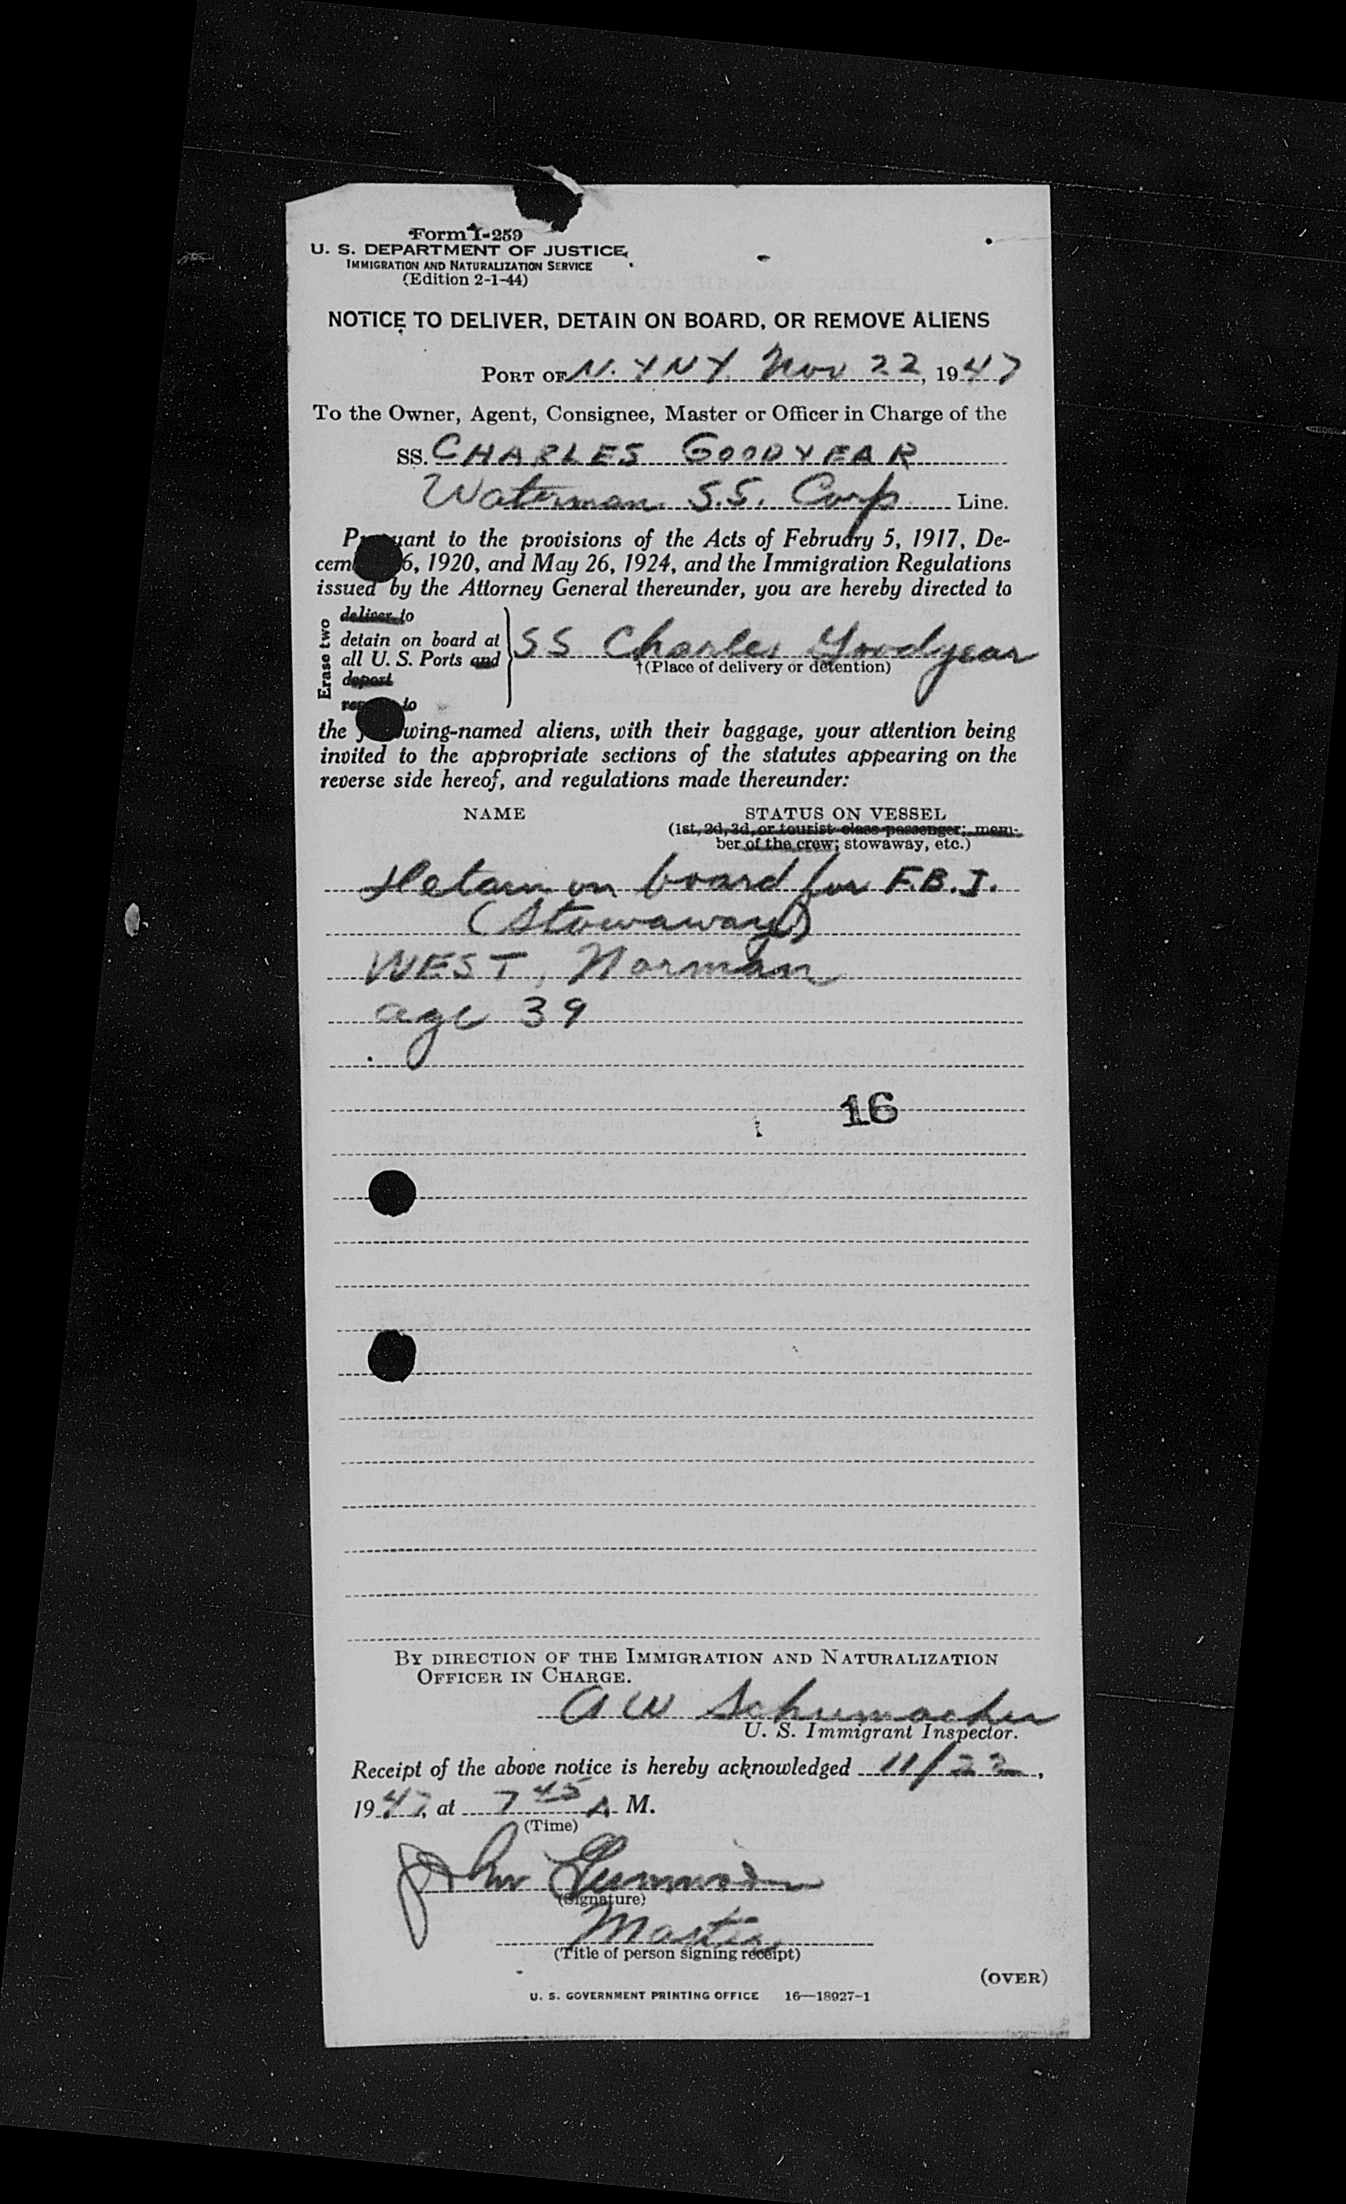 Form I-259
U. S. DEPARTMENT OF JUSTICE
IMMIGRATION AND NATURALIZATION SERVICE
(Edition 2-1-44)
NOTICE TO DELIVER, DETAIN ON BOARD, OR REMOVE ALIENS
PORT OF N. Y N Y. Nov 22, 1947
To the Owner, Agent, Consignee, Master or Officer in Charge of the
SS. CHARLES GOODYEAR
Waterman S.S. Corp Line.
Pursuant to the provisions of the Acts of February 5, 1917, De-
cember 26, 1920, and May 26, 1924, and the Immigration Regulations
issued by the Attorney General thereunder, you are hereby directed to
Erase two
deliver to
detain on board at
all U. S. Ports and
deport
remove to
SS Charles Goodyear
†(Place of delivery or detention)
the following-named aliens, with their baggage, your attention being
invited to the appropriate sections of the statutes appearing on the
reverse side hereof, and regulations made thereunder:
NAME STATUS ON VESSEL
(1st, 2d, 3d, or tourist class passenger; mem-
ber of the crew; stowaway, etc.)
Detain on board for F.B.I.
(Stowaway)
WEST, Norman
age 39
16
BY DIRECTION OF THE IMMIGRATION AND NATURALIZATION
OFFICER IN CHARGE.
A W Schumacher
U. S. Immigrant Inspector.
Receipt of the above notice is hereby acknowledged 11/22,
1947, at 7 45 A. M.
(Time)
John
(Signature)
Master
(Title of person signing receipt)
(OVER)
U. S. GOVERNMENT PRINTING OFFICE 16—18927-1